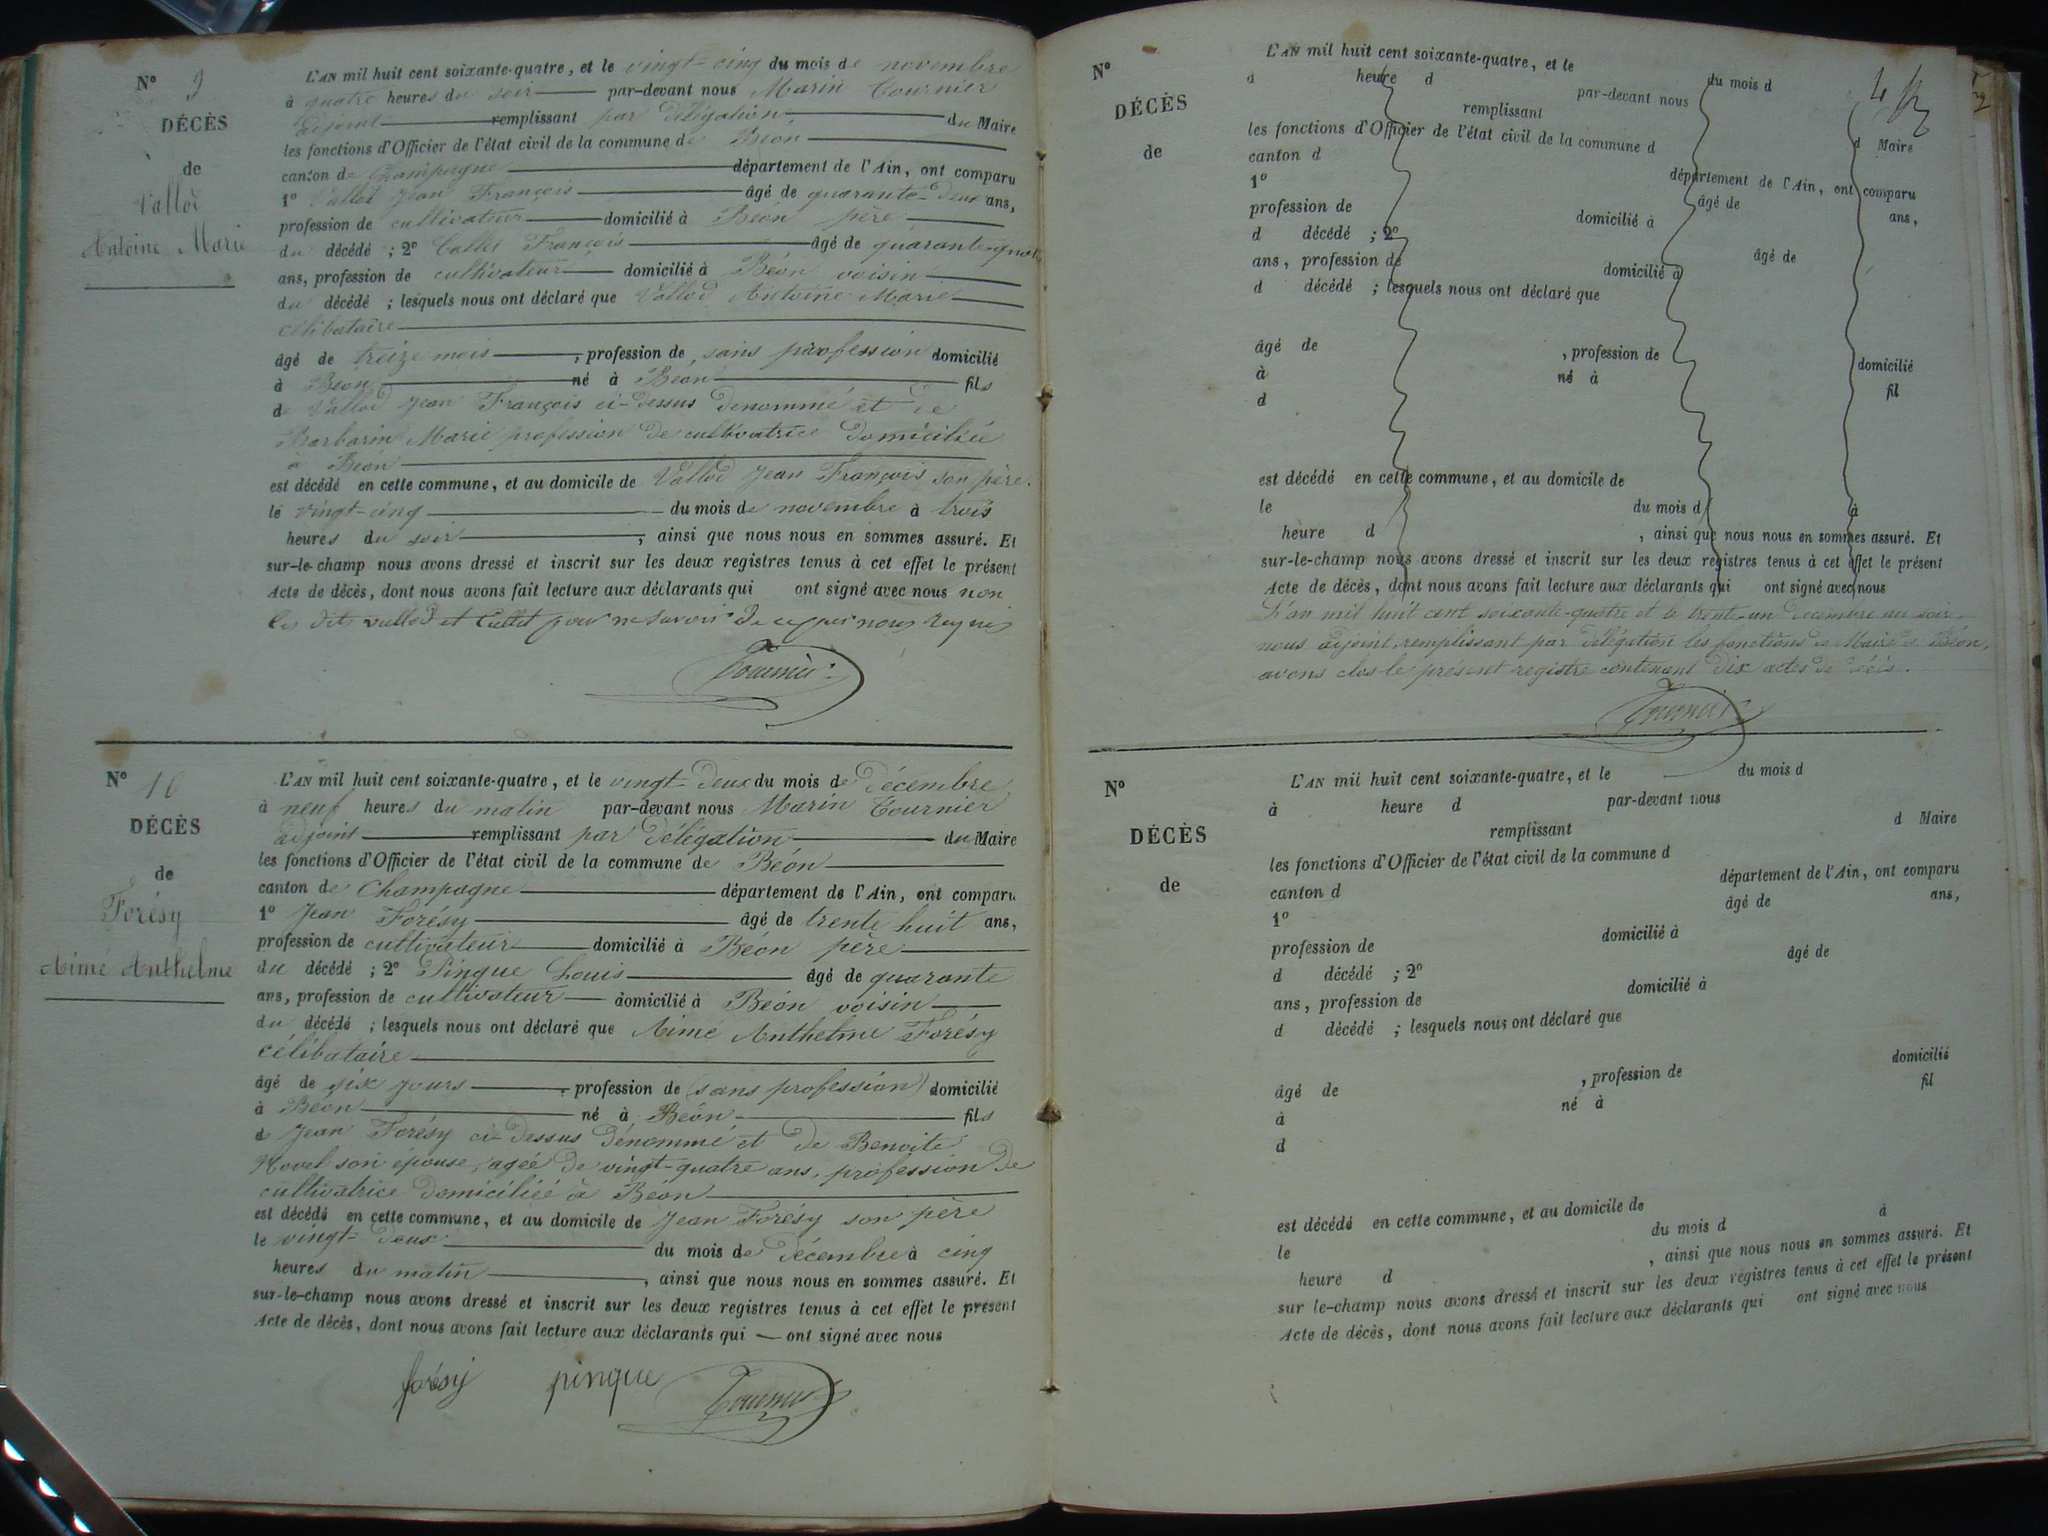 N° 9
DÉCÈS
de
Vallod
Antoine Marie
L'AN mil huit cent soixante-quatre, et le vingt-cinq du mois de novembre
à quatre heures du soir par-devant nous Marin Tournier
adjoint remplissant par délégation du Maire
les fonctions d'Officier de l'état civil de la commune de Béon
canton de Champagne département de l'Ain, ont comparu
1° Vallod Jean François âgé de quarante-deux ans,
profession de cultivateur domicilié à Béon père
du décédé ; 2° Cullet François âgé de quarante-quatre
ans, profession de cultivateur domicilié à Béon voisin
du décédé ; lesquels nous ont déclaré que Vallod Antoine Marie
célibataire
âgé de treize mois, profession de sans profession domicilié
à Béon né à Béon fils
de Vallod Jean François ci-dessus dénommé et de
Barbarin Marie profession de cultivatrice domiciliée
à Béon
est décédé en cette commune, et au domicile de Vallod Jean François son père.
le vingt-cinq du mois de novembre à trois
heures du soir, ainsi que nous nous en sommes assuré. Et
sur-le-champ nous avons dressé et inscrit sur les deux registres tenus à cet effet le présent
Acte de décès, dont nous avons fait lecture aux déclarants qui ont signé avec nous non
les dits vallod et Cullet pour ne savoir de ce par nous requis
Tournier
N° 10
DÉCÈS
de
Forésy
Aimé Anthelme
L'AN mil huit cent soixante-quatre, et le vingt-deux du mois de décembre
à neuf heures du matin par-devant nous Marin Tournier
adjoint remplissant par délégation du Maire
les fonctions d'Officier de l'état civil de la commune de Béon
canton de Champagne département de l'Ain, ont comparu
1° Jean Forésy âgé de trente huit ans,
profession de cultivateur domicilié à Béon père
du décédé ; 2° Pinque Louis âgé de quarante
ans, profession de cultivateur domicilié à Béon voisin
du décédé ; lesquels nous ont déclaré que Aimé Anthelme Forésy
célibataire
âgé de dix jours, profession de (sans profession) domicilié
à Béon né à Béon fils
d Jean Forésy ci-dessus dénommé et de Benoite
Novel son épouse, agée de vingt-quatre ans, profession de
cultivatrice domiciliée à Béon
est décédé en cette commune, et au domicile de Jean Forésy son père
le vingt-deux du mois de décembre à cinq
heures du matin, ainsi que nous nous en sommes assuré. Et
sur-le-champ nous avons dressé et inscrit sur les deux registres tenus à cet effet le présent
Acte de décès, dont nous avons fait lecture aux déclarants qui — ont signé avec nous
forésy pinque Tournier
N°
DÉCÈS
de
L'AN mil huit cent soixante-quatre, et le du mois d
à heure d par-devant nous
remplissant d Maire
les fonctions d'Officier de l'état civil de la commune d
canton d département de l'Ain, ont comparu
1° âgé de ans,
profession de domicilié à
d décédé ; 2° âgé de
ans, profession de domicilié à
d décédé ; lesquels nous ont déclaré que
âgé de , profession de domicilié
à né à fil
d
est décédé en cette commune, et au domicile de
le du mois d à
heure d , ainsi que nous nous en sommes assuré. Et
sur-le-champ nous avons dressé et inscrit sur les deux registres tenus à cet effet le présent
Acte de décès, dont nous avons fait lecture aux déclarants qui ont signé avec nous
L'an mil huit cent soixante-quatre et le trente-un décembre au soir
nous adjoint, remplissant par délégation les fonctions de Maire de Béon,
avons clos le présent registre contenant dix actes de décès.
Tournier
N°
DÉCÈS
de
L'AN mil huit cent soixante-quatre, et le du mois d
à heure d par-devant nous
remplissant d Maire
les fonctions d'Officier de l'état civil de la commune d
canton d département de l'Ain, ont comparu
1° âgé de ans,
profession de domicilié à
d décédé ; 2° âgé de
ans, profession de domicilié à
d décédé ; lesquels nous ont déclaré que
âgé de , profession de domicilié
à né à fil
d
est décédé en cette commune, et au domicile de
le du mois d à
heure d , ainsi que nous nous en sommes assuré. Et
sur le-champ nous avons dressé et inscrit sur les deux registres tenus à cet effet le présent
Acte de décès, dont nous avons fait lecture aux déclarants qui ont signé avec nous